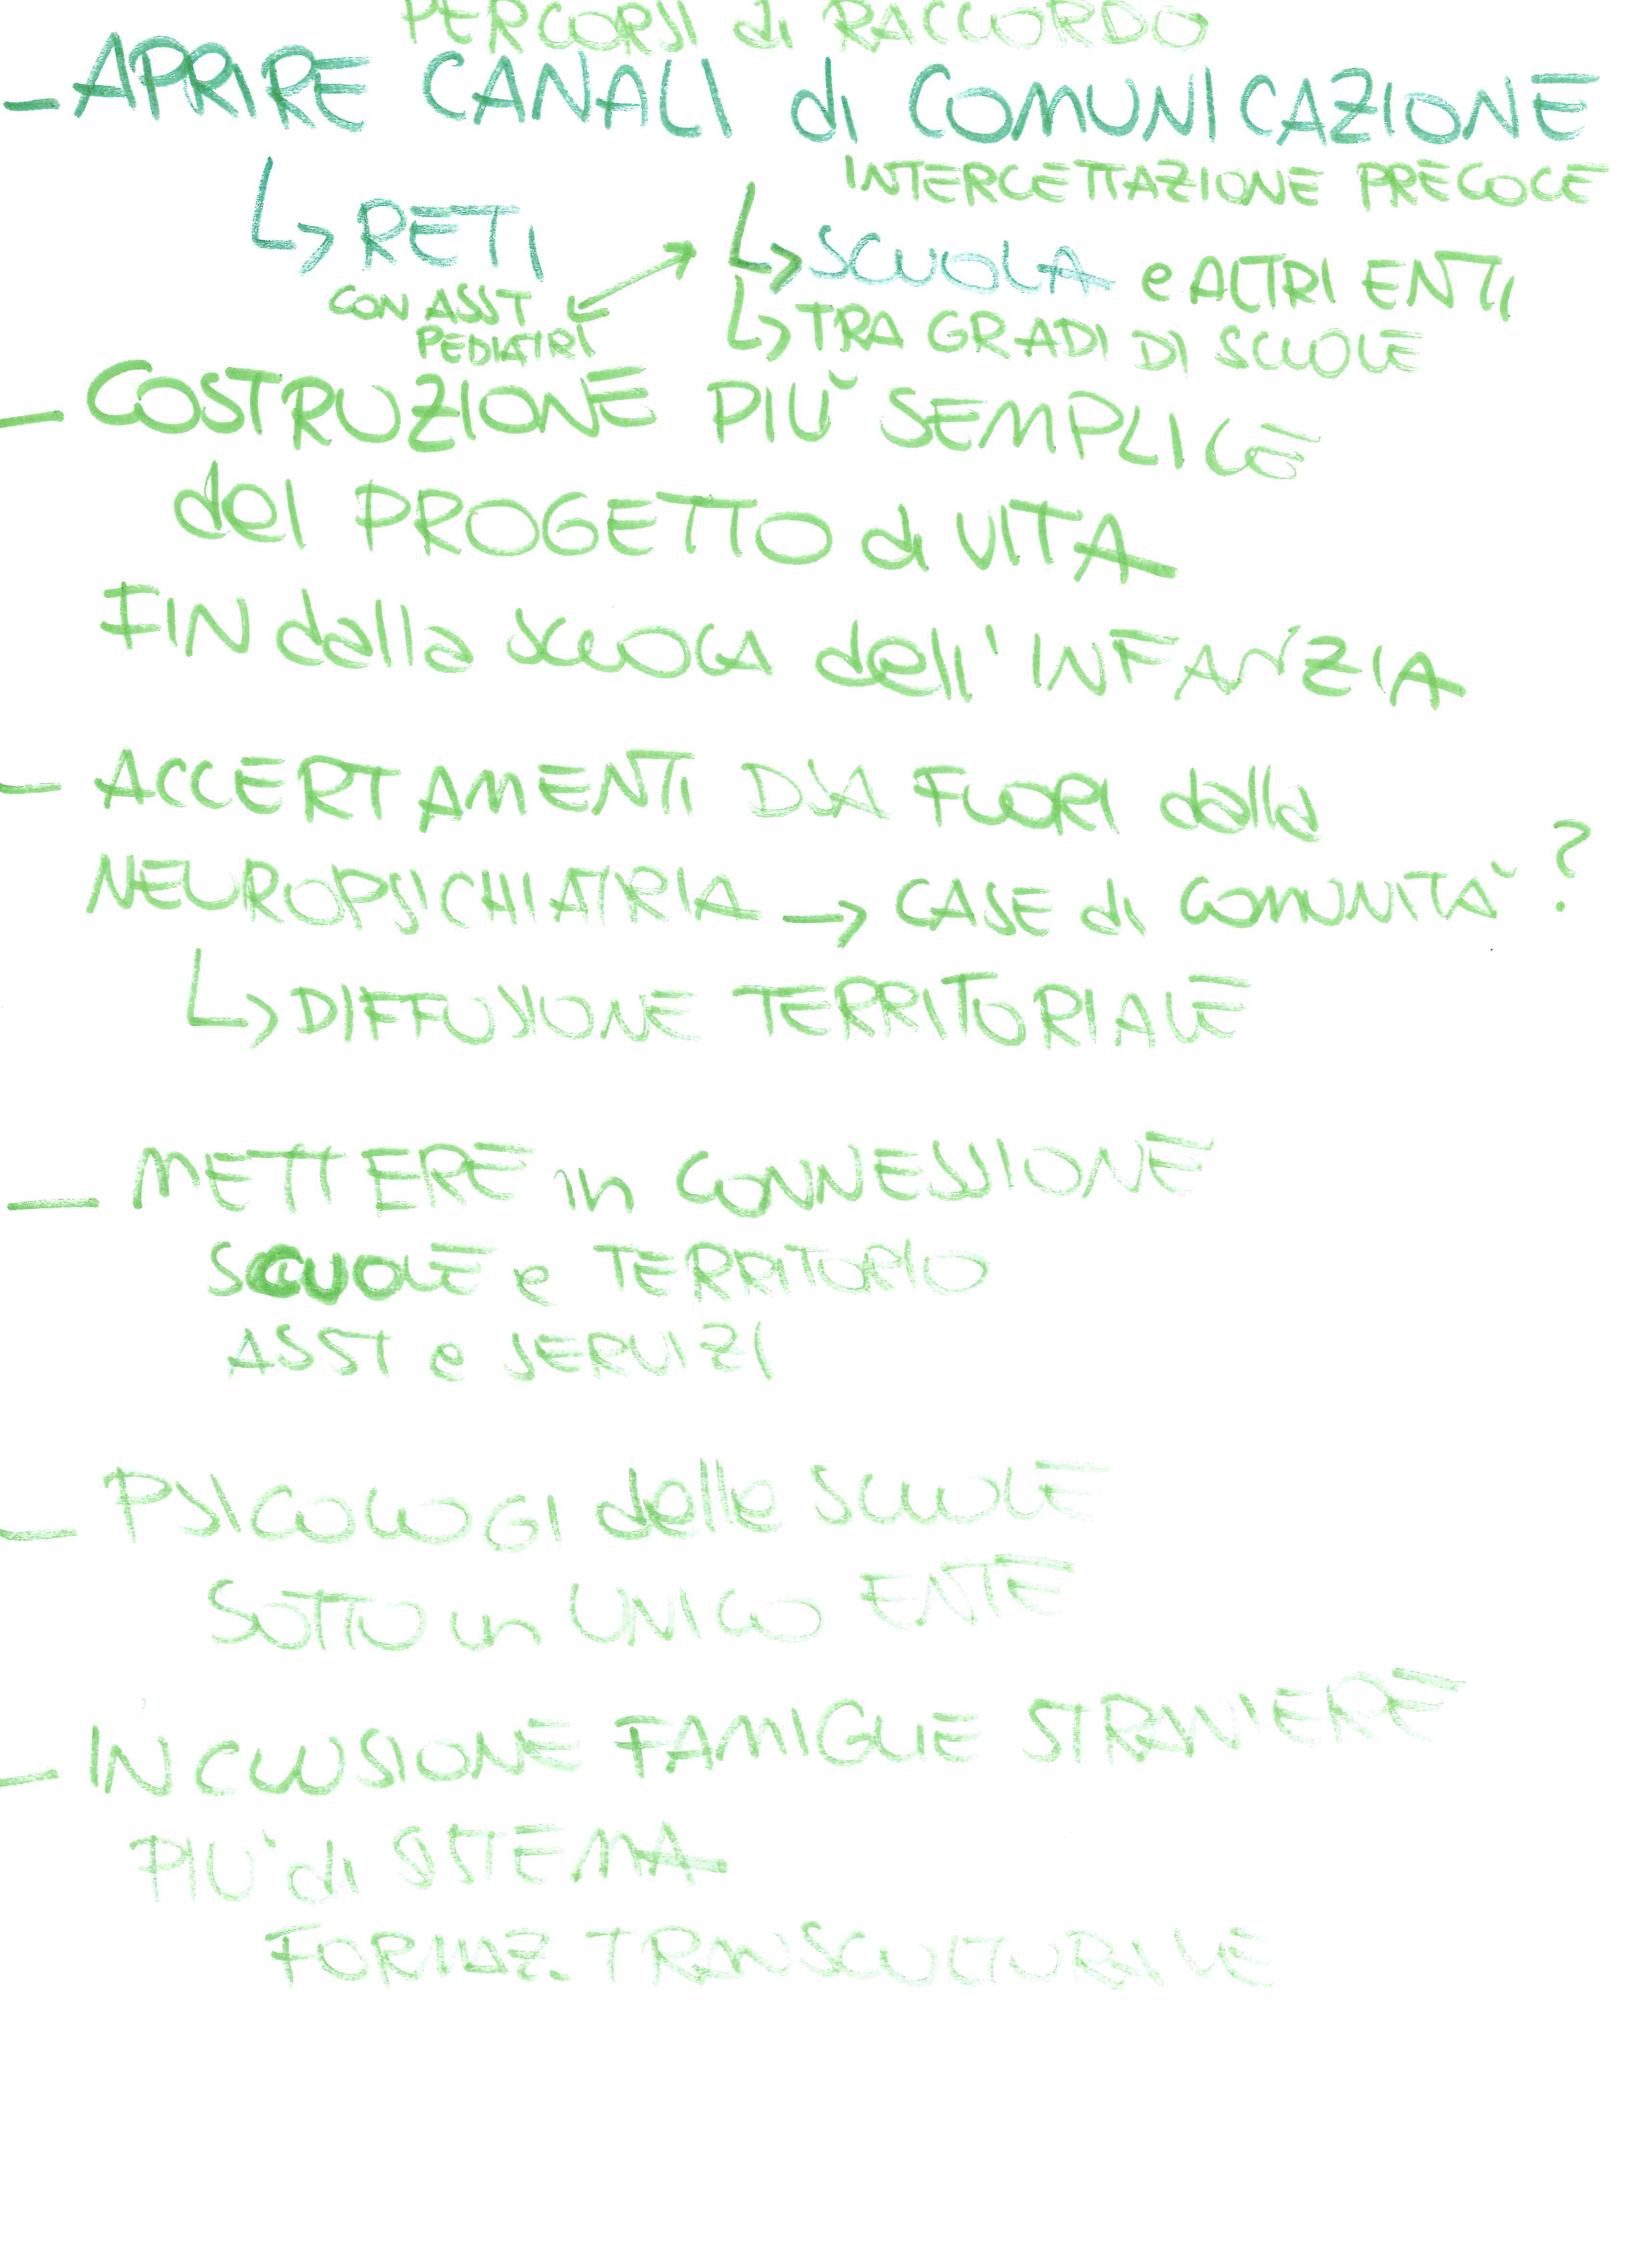 PERCORSI di RACCORDO
- APRIRE CANALI di COMUNICAZIONE
INTERCETTAZIONE PRECOCE
↳ RETI ↳ SCUOLA e ALTRI ENTI
CON ASST ↳ TRA GRADI DI SCUOLE
PEDIATRI
- COSTRUZIONE PIÙ SEMPLICE
del PROGETTO di VITA
FIN dalla SCUOLA dell'INFANZIA
- ACCERTAMENTI DSA FUORI dalla
NEUROPSICHIATRIA → CASE di COMUNITÀ ?
↳ DIFFUSIONE TERRITORIALE
- METTERE in CONNESSIONE
SCUOLE e TERRITORIO
ASST e SERVIZI
- PSICOLOGI delle SCUOLE
SOTTO un UNICO ENTE
- INCLUSIONE FAMIGLIE STRANIERE
PIÙ di SISTEMA
FORMAZ. TRANSCULTURALE